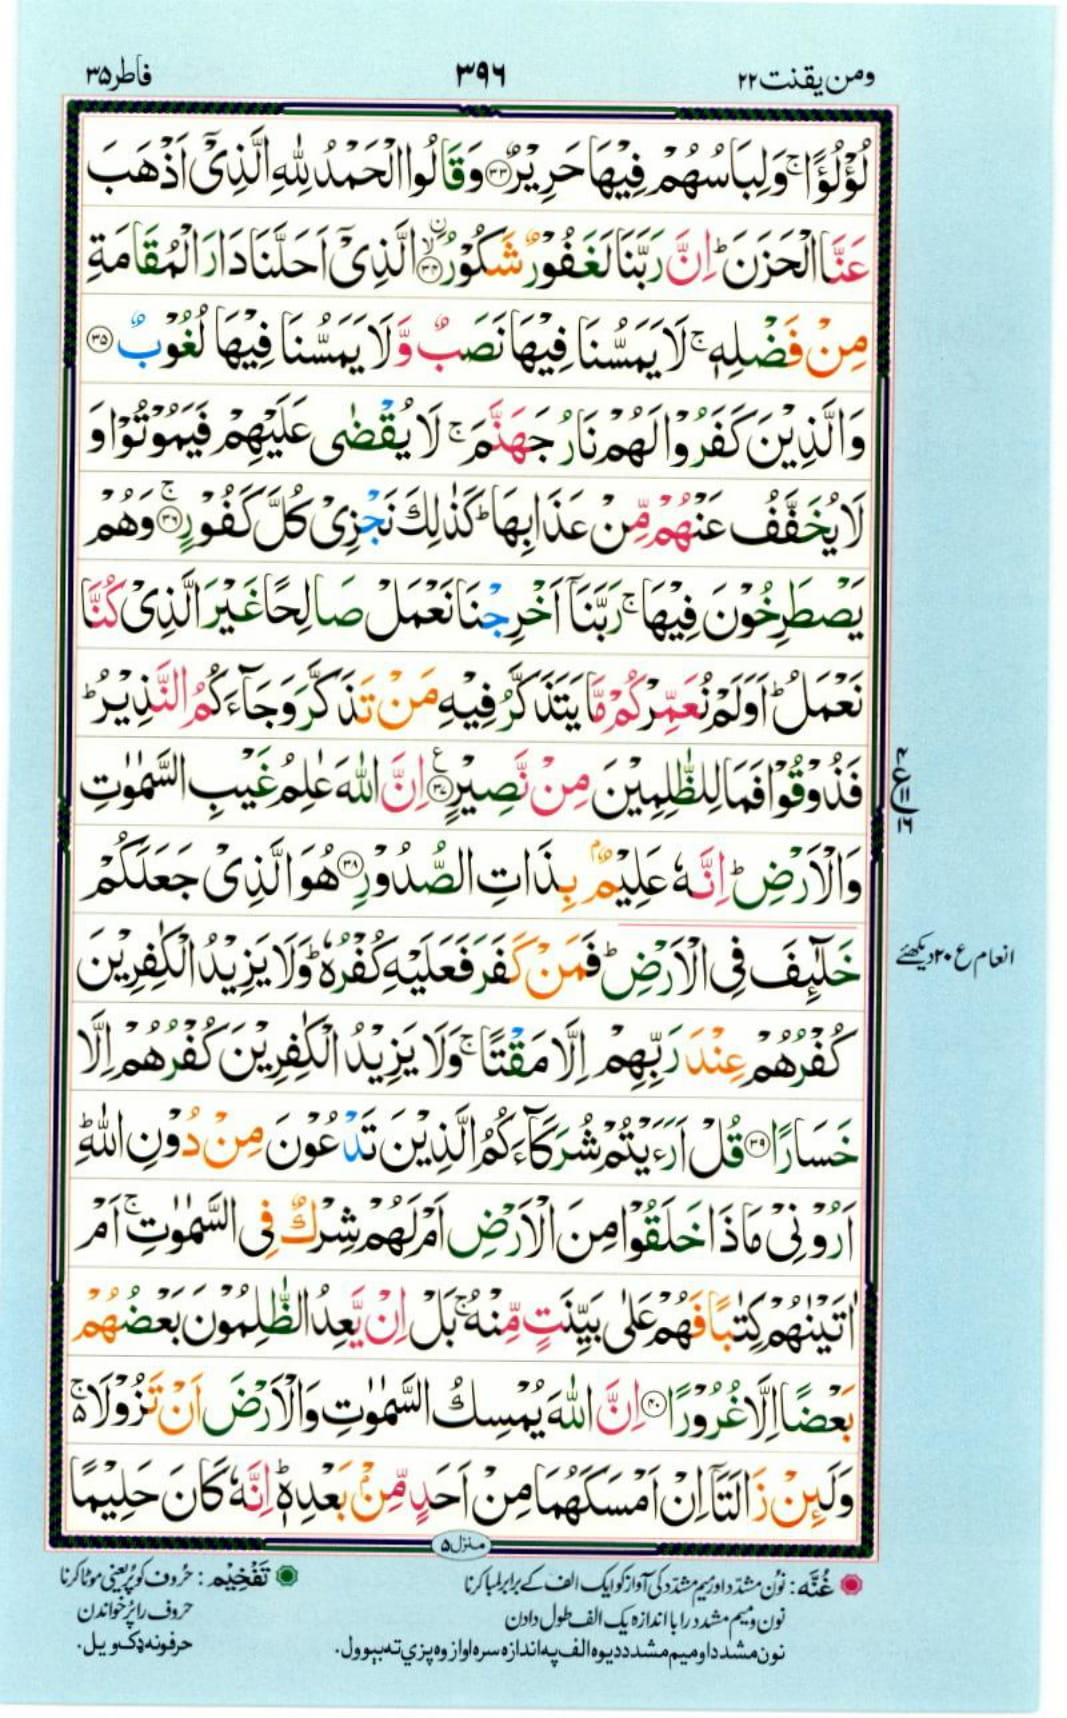 ومن یقنت ۲۲
۳۹۶
فاطر ۳۵
لُؤْلُؤًا ۚ وَلِبَاسُهُمْ فِيْهَا حَرِيْرٌ ﴿۳۳﴾ وَقَالُوا الْحَمْدُ لِلّٰهِ الَّذِيْۤ اَذْهَبَ
عَنَّا الْحَزَنَ ؕ اِنَّ رَبَّنَا لَغَفُوْرٌ شَكُوْرُ ۙ﴿۳۴﴾ۨ الَّذِيْۤ اَحَلَّنَا دَارَ الْمُقَامَةِ
مِنْ فَضْلِهٖ ۚ لَا يَمَسُّنَا فِيْهَا نَصَبٌ وَّلَا يَمَسُّنَا فِيْهَا لُغُوْبٌ ﴿۳۵﴾
وَالَّذِيْنَ كَفَرُوْا لَهُمْ نَارُ جَهَنَّمَ ۚ لَا يُقْضٰى عَلَيْهِمْ فَيَمُوْتُوْا وَ
لَا يُخَفَّفُ عَنْهُمْ مِّنْ عَذَابِهَا ؕ كَذٰلِكَ نَجْزِيْ كُلَّ كَفُوْرٍ ۚ﴿۳۶﴾ وَهُمْ
يَصْطَرِخُوْنَ فِيْهَا ۚ رَبَّنَاۤ اَخْرِجْنَا نَعْمَلْ صَالِحًا غَيْرَ الَّذِيْ كُنَّا
نَعْمَلُ ؕ اَوَلَمْ نُعَمِّرْكُمْ مَّا يَتَذَكَّرُ فِيْهِ مَنْ تَذَكَّرَ وَجَآءَكُمُ النَّذِيْرُ ؕ
فَذُوْقُوْا فَمَا لِلظّٰلِمِيْنَ مِنْ نَّصِيْرٍ ﴿۳۷﴾ اِنَّ اللّٰهَ عٰلِمُ غَيْبِ السَّمٰوٰتِ
ع
۴
۱۱
۱۶
وَالْاَرْضِ ؕ اِنَّهٗ عَلِيْمٌۢ بِذَاتِ الصُّدُوْرِ ﴿۳۸﴾ هُوَ الَّذِيْ جَعَلَكُمْ
خَلٰٓئِفَ فِي الْاَرْضِ ؕ فَمَنْ كَفَرَ فَعَلَيْهِ كُفْرُهٗ ؕ وَلَا يَزِيْدُ الْكٰفِرِيْنَ
انعام ع ۲۰ دیکھئے
كُفْرُهُمْ عِنْدَ رَبِّهِمْ اِلَّا مَقْتًا ۚ وَلَا يَزِيْدُ الْكٰفِرِيْنَ كُفْرُهُمْ اِلَّا
خَسَارًا ﴿۳۹﴾ قُلْ اَرَءَيْتُمْ شُرَكَآءَكُمُ الَّذِيْنَ تَدْعُوْنَ مِنْ دُوْنِ اللّٰهِ ؕ
اَرُوْنِيْ مَاذَا خَلَقُوْا مِنَ الْاَرْضِ اَمْ لَهُمْ شِرْكٌ فِي السَّمٰوٰتِ ۚ اَمْ
اٰتَيْنٰهُمْ كِتٰبًا فَهُمْ عَلٰى بَيِّنَتٍ مِّنْهُ ۚ بَلْ اِنْ يَّعِدُ الظّٰلِمُوْنَ بَعْضُهُمْ
بَعْضًا اِلَّا غُرُوْرًا ﴿۴۰﴾ اِنَّ اللّٰهَ يُمْسِكُ السَّمٰوٰتِ وَالْاَرْضَ اَنْ تَزُوْلَا ۚ۬
وَلَئِنْ زَالَتَاۤ اِنْ اَمْسَكَهُمَا مِنْ اَحَدٍ مِّنْۢ بَعْدِهٖ ؕ اِنَّهٗ كَانَ حَلِيْمًا
منزل ۵
غُنَّه : نُون مشدّد اور میم مشدّد کی آواز کو ایک الف کے برابر لمبا کرنا
نون و میم مشدد را با اندازه یک الف طول دادن
نون مشدد او میم مشدد د یوه الف په اندازه سره اواز وه پزي ته بېوول.
تَفْخِیْم : حُروف کو پُر یعنی موٹا کرنا
حروف را پُر خواندن
حرفونه ډک ویل.